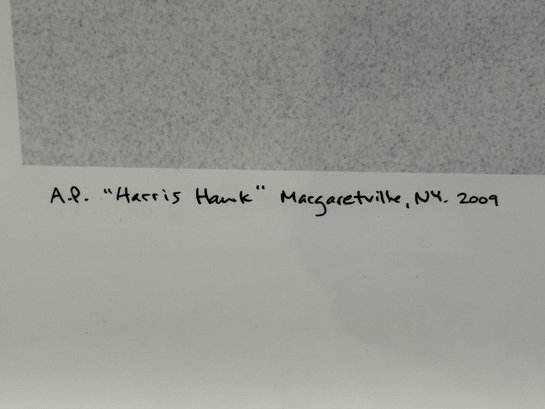 A.P. "Harris Hawk" Margaretville, NY. 2009